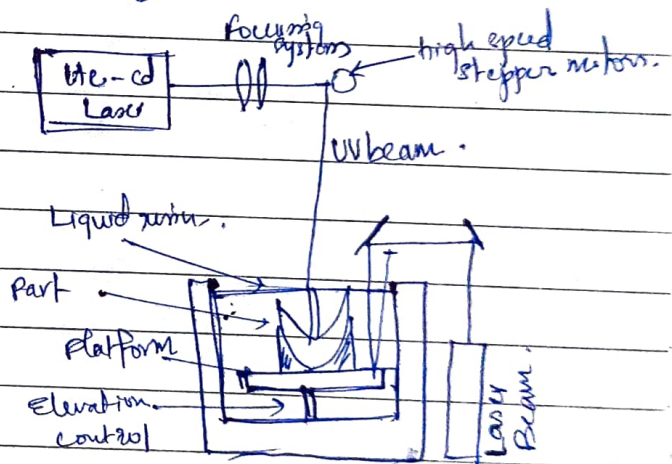 focusing
system
high speed
stepper motors.
He-cd
Laser
UV beam.
Liquid resin.
Part
Platform
Elevation
control
Laser
Beam.